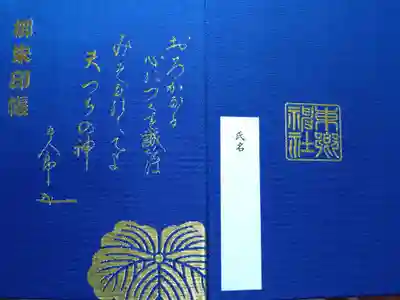 東郷
神社
氏名
おろかなる
心につくす誠をば
みそなはしてよ
天つちの神
平八郎
御朱印帳